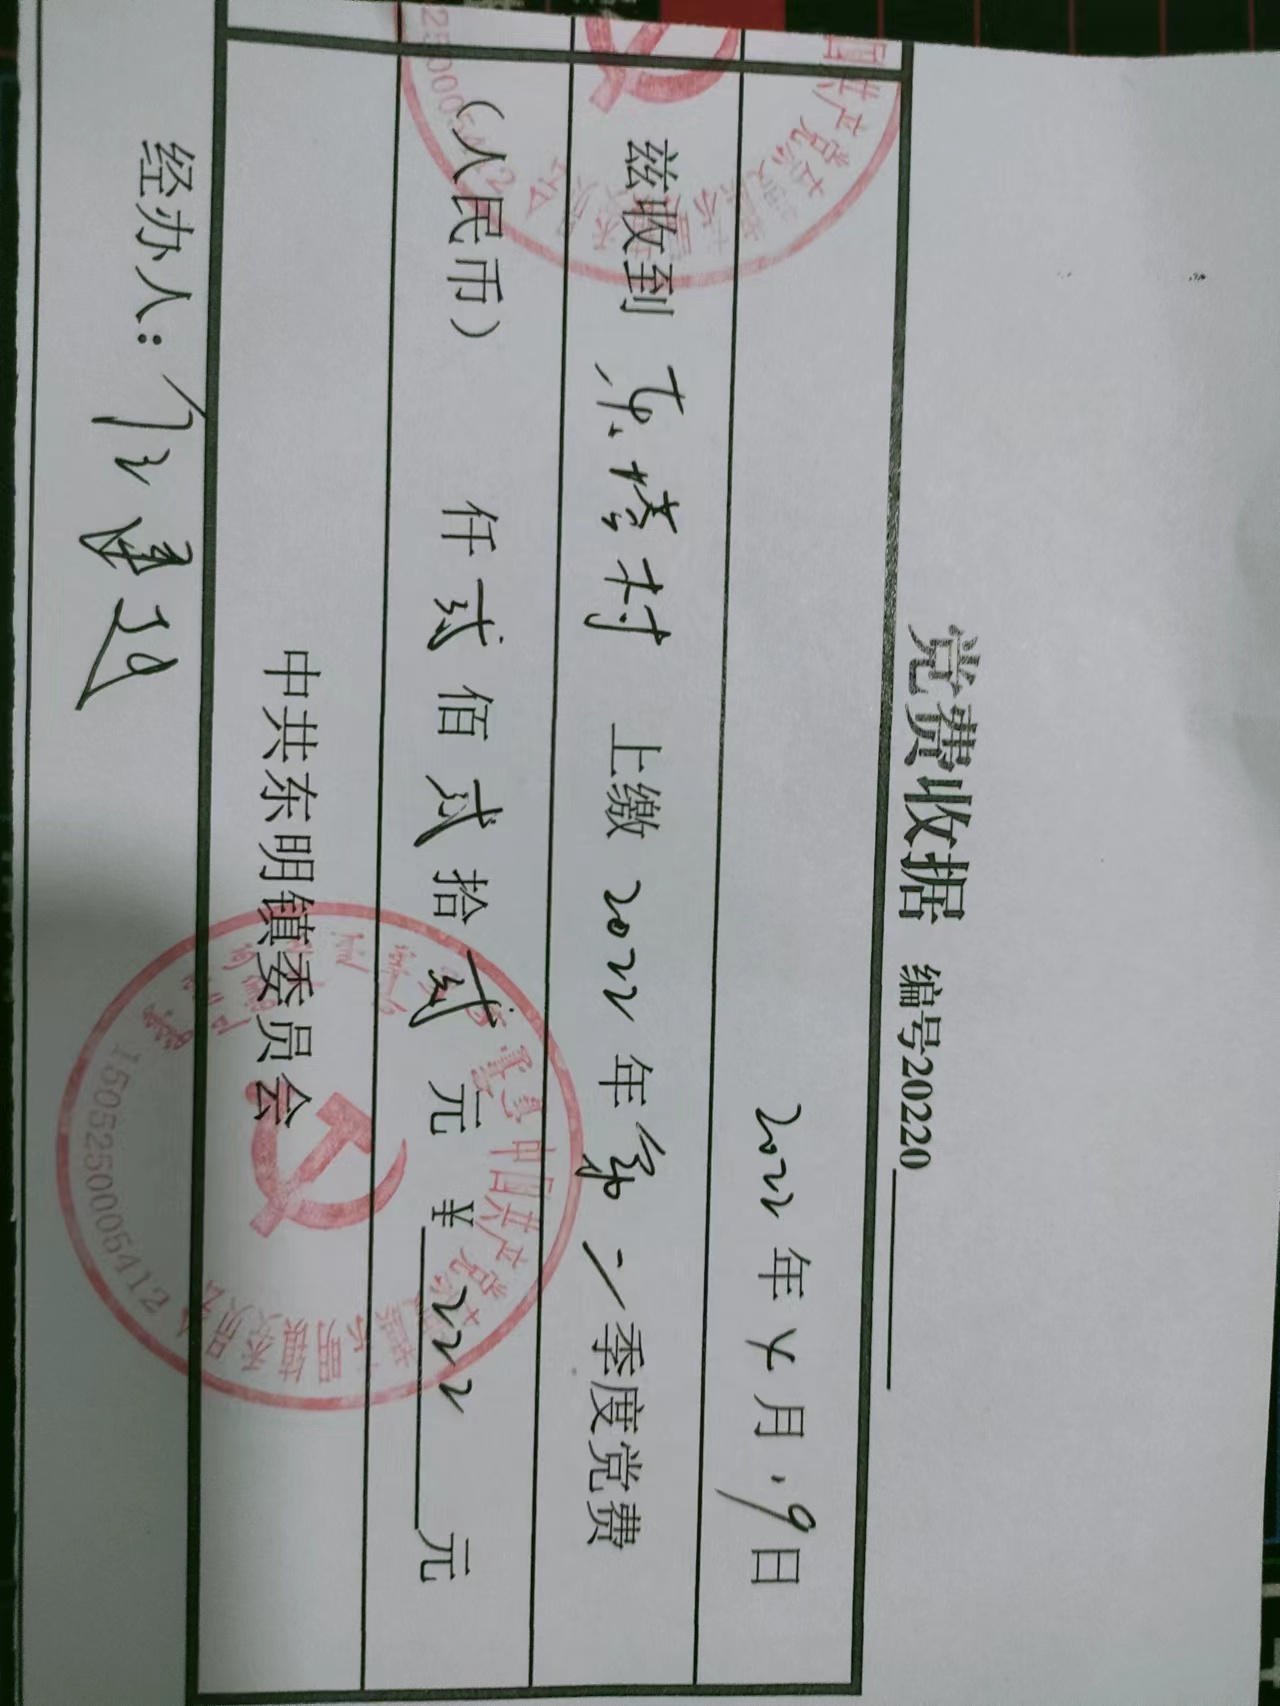 党费收据 编号20220
2022年4月19日
兹收到 东塔村 上缴 2022 年第 一 季度党费
（人民币） 仟 贰 佰 贰 拾 贰 元 ¥ 222 元
中共东明镇委员会
经办人：
中国共产党
东明镇委员会
1505250005412